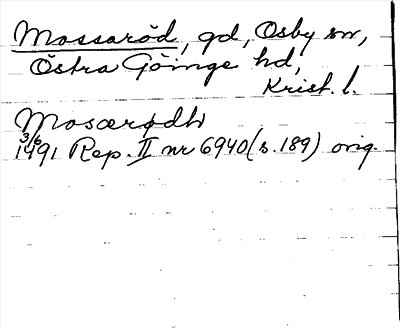 Mossaröd, gd, Osby sn,
Östra Göinge hd,
Krist. l.
Mosærødh
3/6
1491 Rep. II nr 6940 (s. 189) orig